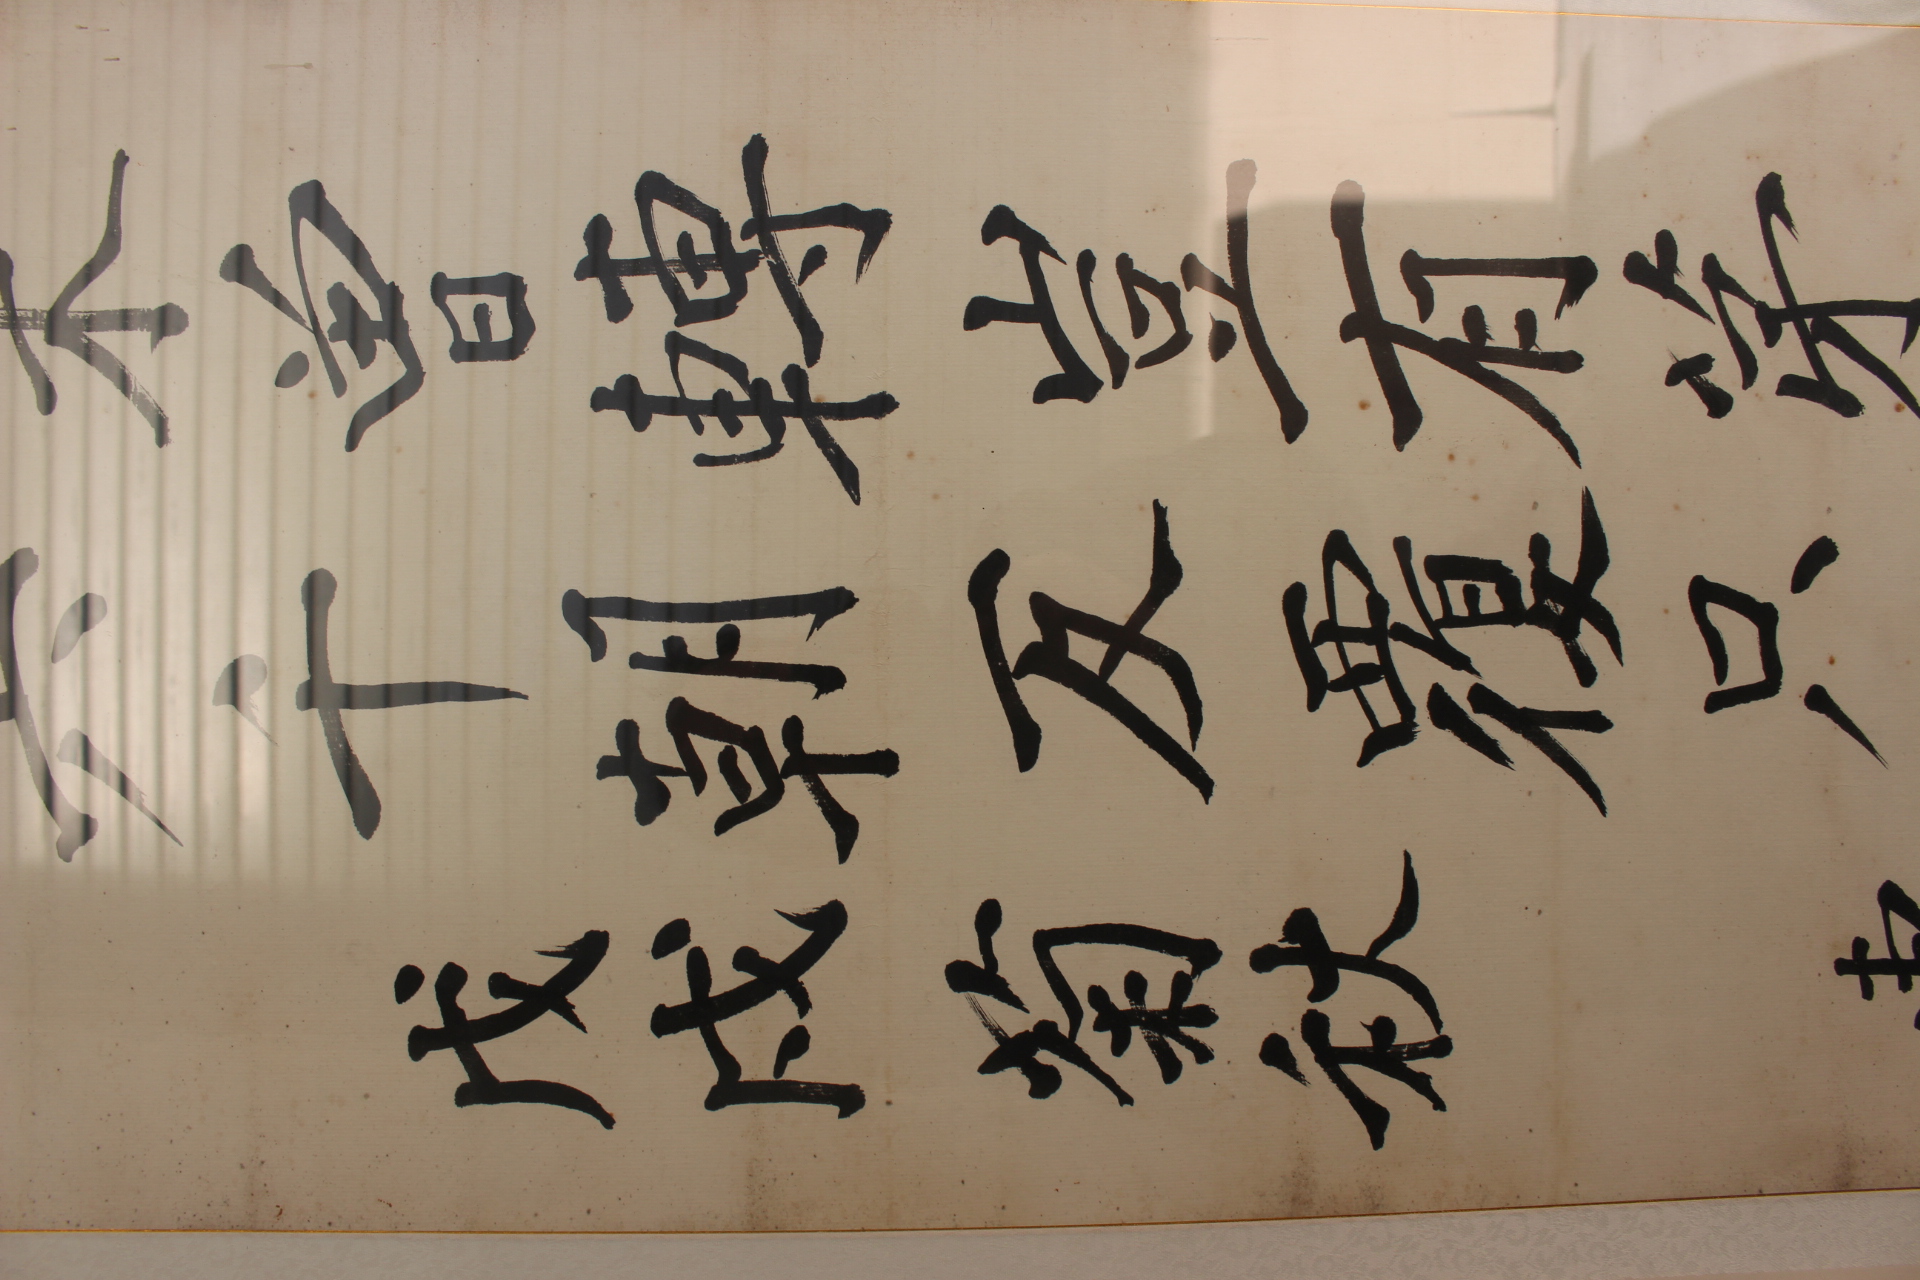 未曾轉豈有茅
六千朝反覆只
戊戌菊秋